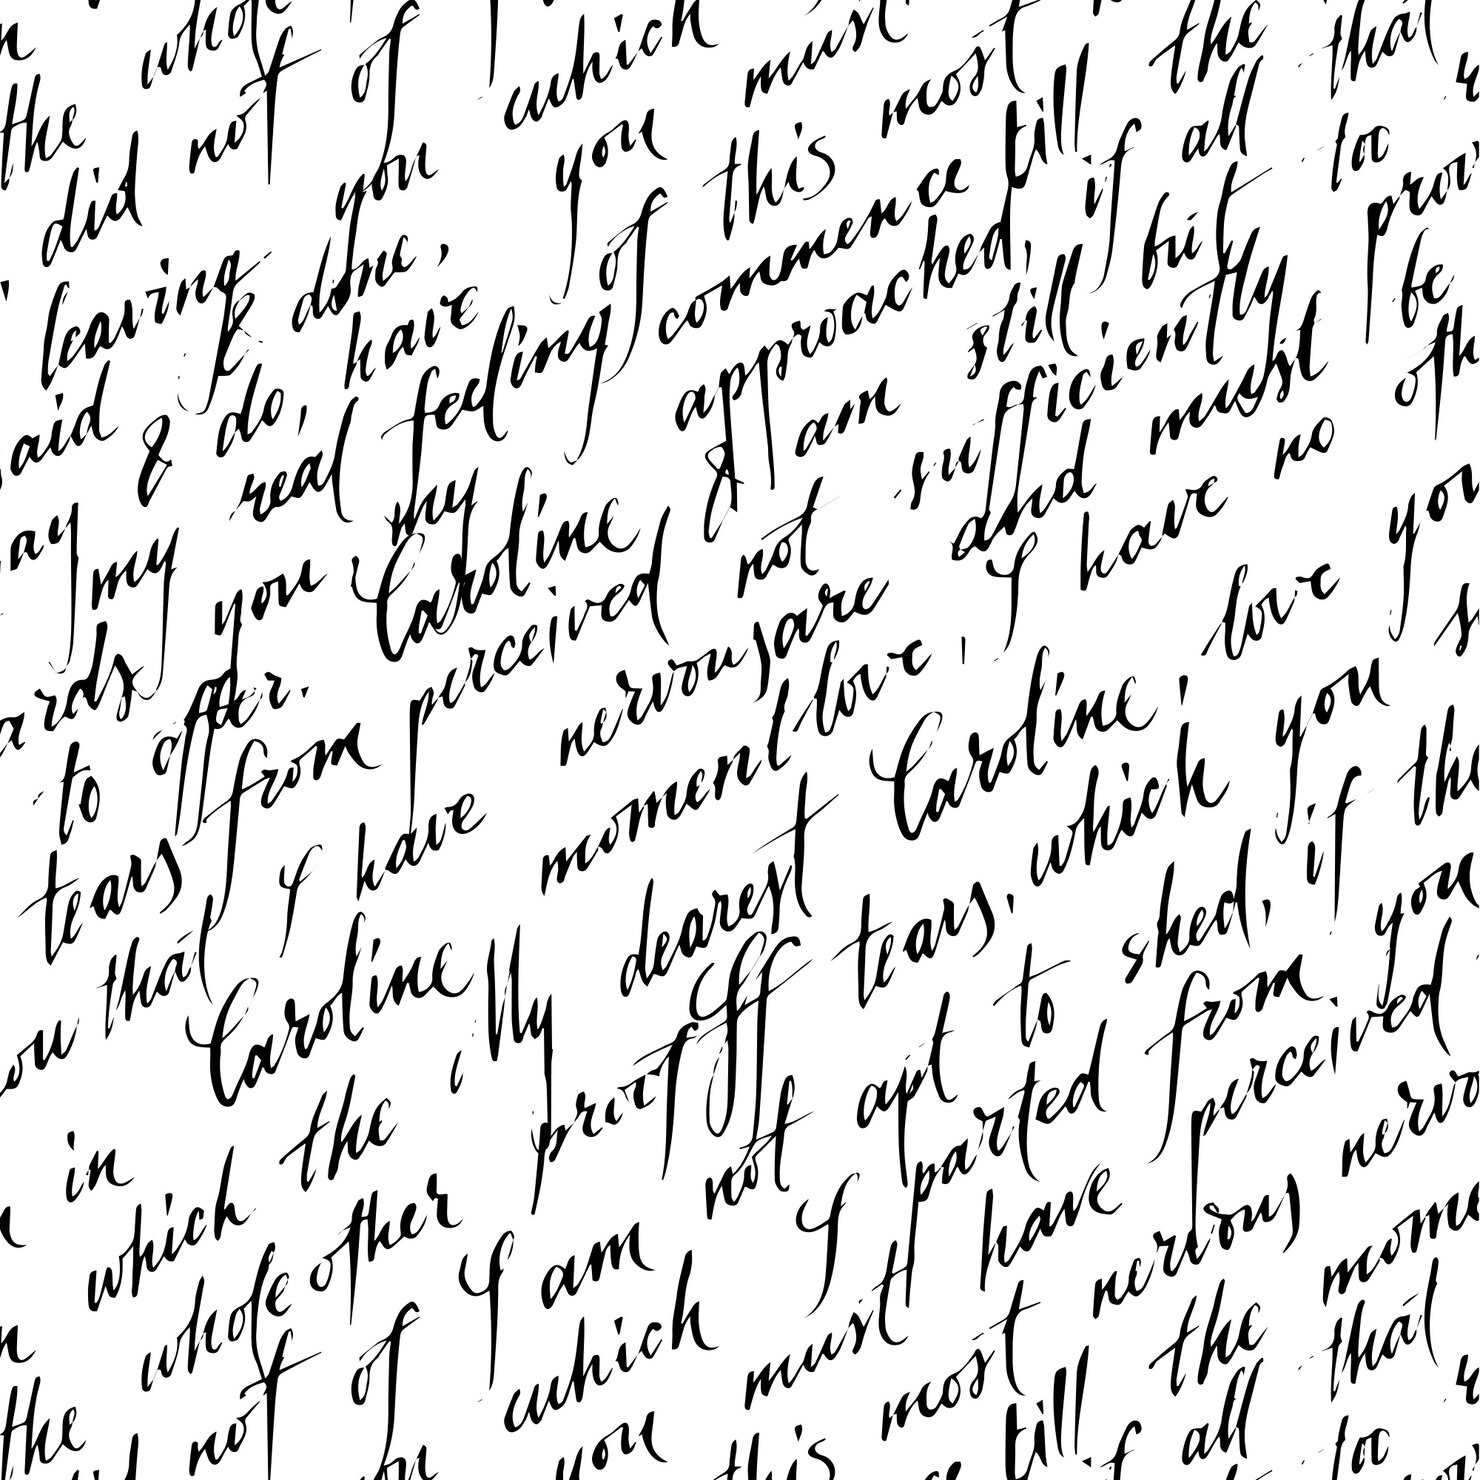 whole of
the did not of which must most the that
leaving you you this till all too
said & done, of commence if prov
do, have feeling approached, still but be
ay my real my am sufficiently oth
you, Caroline & not and must no
ards to offer. perceived nervous are I have you
tears from moment love, love
that I have dearest Caroline, you
ou Caroline My tears, which if the
in the proof If to shed, you
which other not apt from perceived
whole I am I parted have nervo
the not of which must nervous mome
you this most the that
till if all too